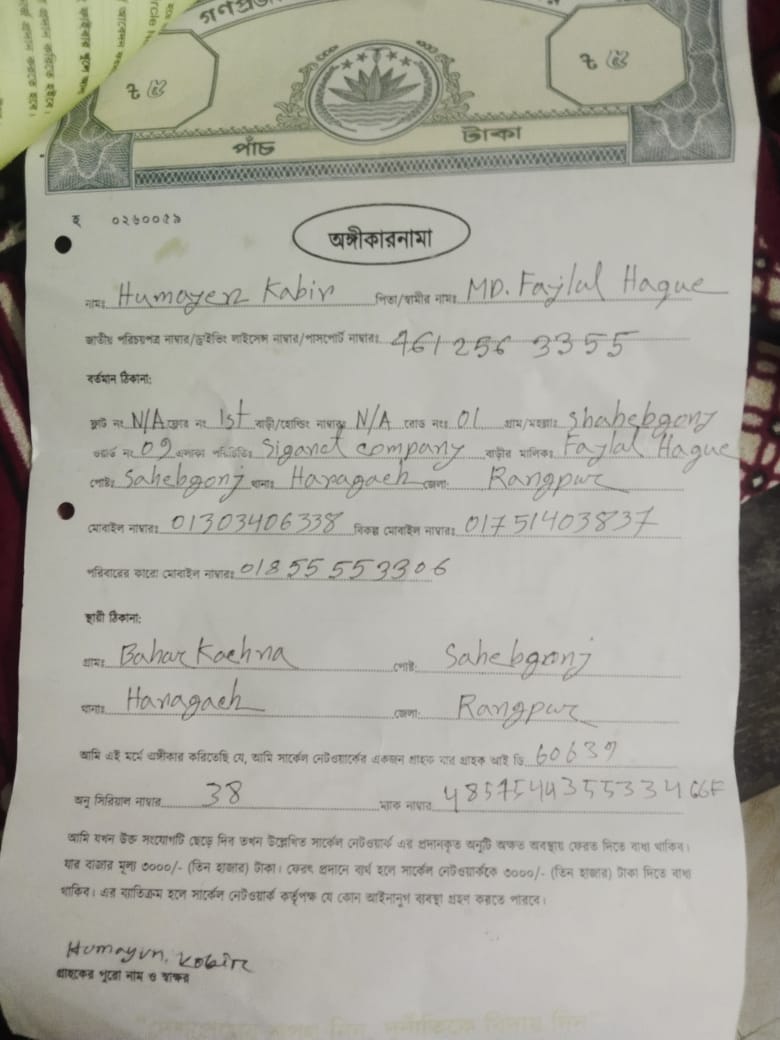 ৳ ৫
৳ ৫
পাঁচ টাকা
হ ০২৬০০৫৯
অঙ্গীকারনামা
নামঃ Humayen Kabir পিতা/স্বামীর নামঃ MD. Fajlal Haque
জাতীয় পরিচয়পত্র নাম্বার/ড্রাইভিং লাইসেন্স নাম্বার/পাসপোর্ট নাম্বারঃ 461 256 3355
বর্তমান ঠিকানা:
ফ্লাট নং N/A ফ্লোর নং 1st বাড়ী/হোল্ডিং নাম্বারঃ N/A রোড নংঃ 01 গ্রাম/মহল্লাঃ Shahebgonj
ওয়ার্ড নং 09 এলাকা পরিচিতিঃ Siganet company বাড়ীর মালিকঃ Fajlal Haque
পোষ্টঃ Sahebgonj থানাঃ Haragach জেলা: Rangpur
মোবাইল নাম্বারঃ 01303406338 বিকল্প মোবাইল নাম্বারঃ 01751403837
পরিবারের কারো মোবাইল নাম্বারঃ 01855553306
স্থায়ী ঠিকানা:
গ্রামঃ Bahar Kachna পোষ্ট: Sahebgonj
থানাঃ Haragach জেলা: Rangpur
আমি এই মর্মে অঙ্গীকার করিতেছি যে, আমি সার্কেল নেটওয়ার্কের একজন গ্রাহক যার গ্রাহক আই ডি 60639
অনু সিরিয়াল নাম্বার 38 ম্যাক নাম্বার 48575443555334 66F
আমি যখন উক্ত সংযোগটি ছেড়ে দিব তখন উল্লেখিত সার্কেল নেটওয়ার্ক এর প্রদানকৃত অনুটি অক্ষত অবস্থায় ফেরত দিতে বাধ্য থাকিব।
যার বাজার মূল্য ৩০০০/- (তিন হাজার) টাকা। ফেরৎ প্রদানে ব্যর্থ হলে সার্কেল নেটওয়ার্ককে ৩০০০/- (তিন হাজার) টাকা দিতে বাধ্য
থাকিব। এর ব্যতিক্রম হলে সার্কেল নেটওয়ার্ক কর্তৃপক্ষ যে কোন আইনানুগ ব্যবস্থা গ্রহণ করতে পারবে।
Humayun. Kobir
গ্রাহকের পুরো নাম ও স্বাক্ষর